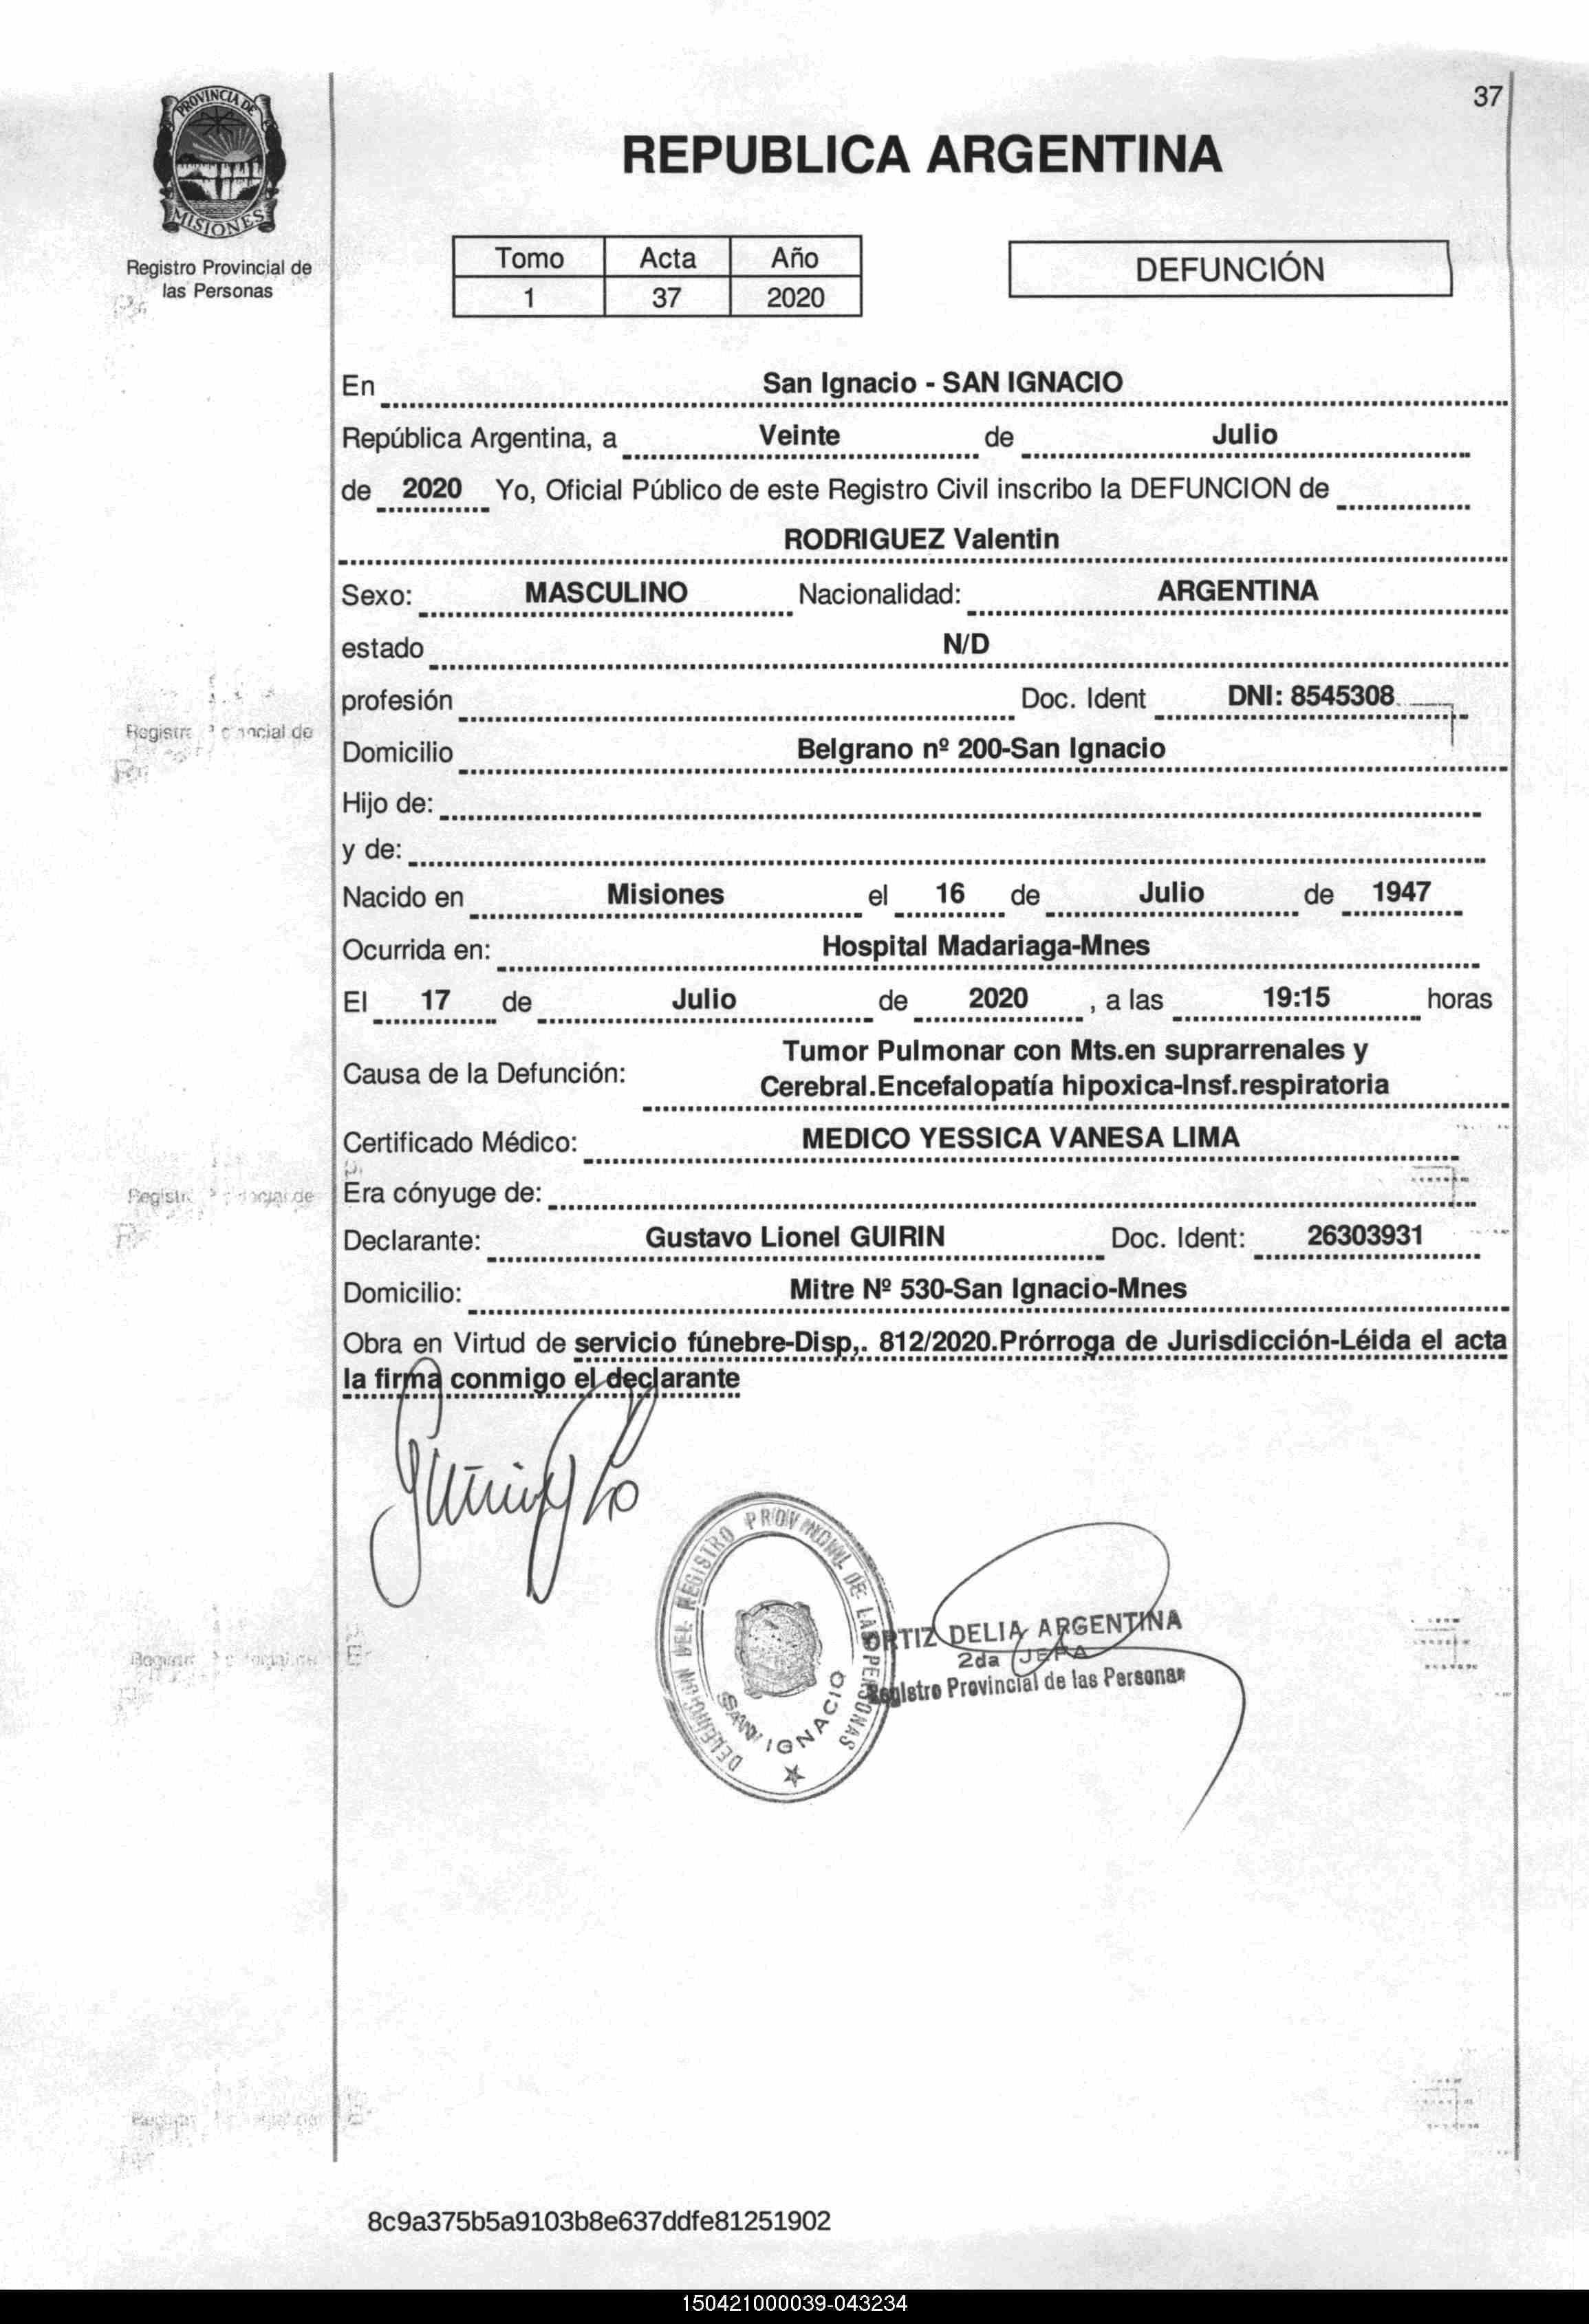 37
PROVINCIA DE
MISIONES
Registro Provincial de
las Personas
REPUBLICA ARGENTINA
Tomo Acta Año
1 37 2020
DEFUNCIÓN
En San Ignacio - SAN IGNACIO
República Argentina, a Veinte de Julio
de 2020 Yo, Oficial Público de este Registro Civil inscribo la DEFUNCION de
RODRIGUEZ Valentin
Sexo: MASCULINO Nacionalidad: ARGENTINA
estado N/D
profesión Doc. Ident DNI: 8545308
Domicilio Belgrano nº 200-San Ignacio
Hijo de:
y de:
Nacido en Misiones el 16 de Julio de 1947
Ocurrida en: Hospital Madariaga-Mnes
El 17 de Julio de 2020 , a las 19:15 horas
Causa de la Defunción: Tumor Pulmonar con Mts.en suprarrenales y
Cerebral.Encefalopatía hipoxica-Insf.respiratoria
Certificado Médico: MEDICO YESSICA VANESA LIMA
Era cónyuge de:
Declarante: Gustavo Lionel GUIRIN Doc. Ident: 26303931
Domicilio: Mitre Nº 530-San Ignacio-Mnes
Obra en Virtud de servicio fúnebre-Disp,. 812/2020.Prórroga de Jurisdicción-Léida el acta
la firma conmigo el declarante
DELEGACION DEL REGISTRO PROVINCIAL DE LAS PERSONAS
SAN IGNACIO
ORTIZ DELIA ARGENTINA
2da JEFA
Registro Provincial de las Personas
8c9a375b5a9103b8e637ddfe81251902
150421000039-043234